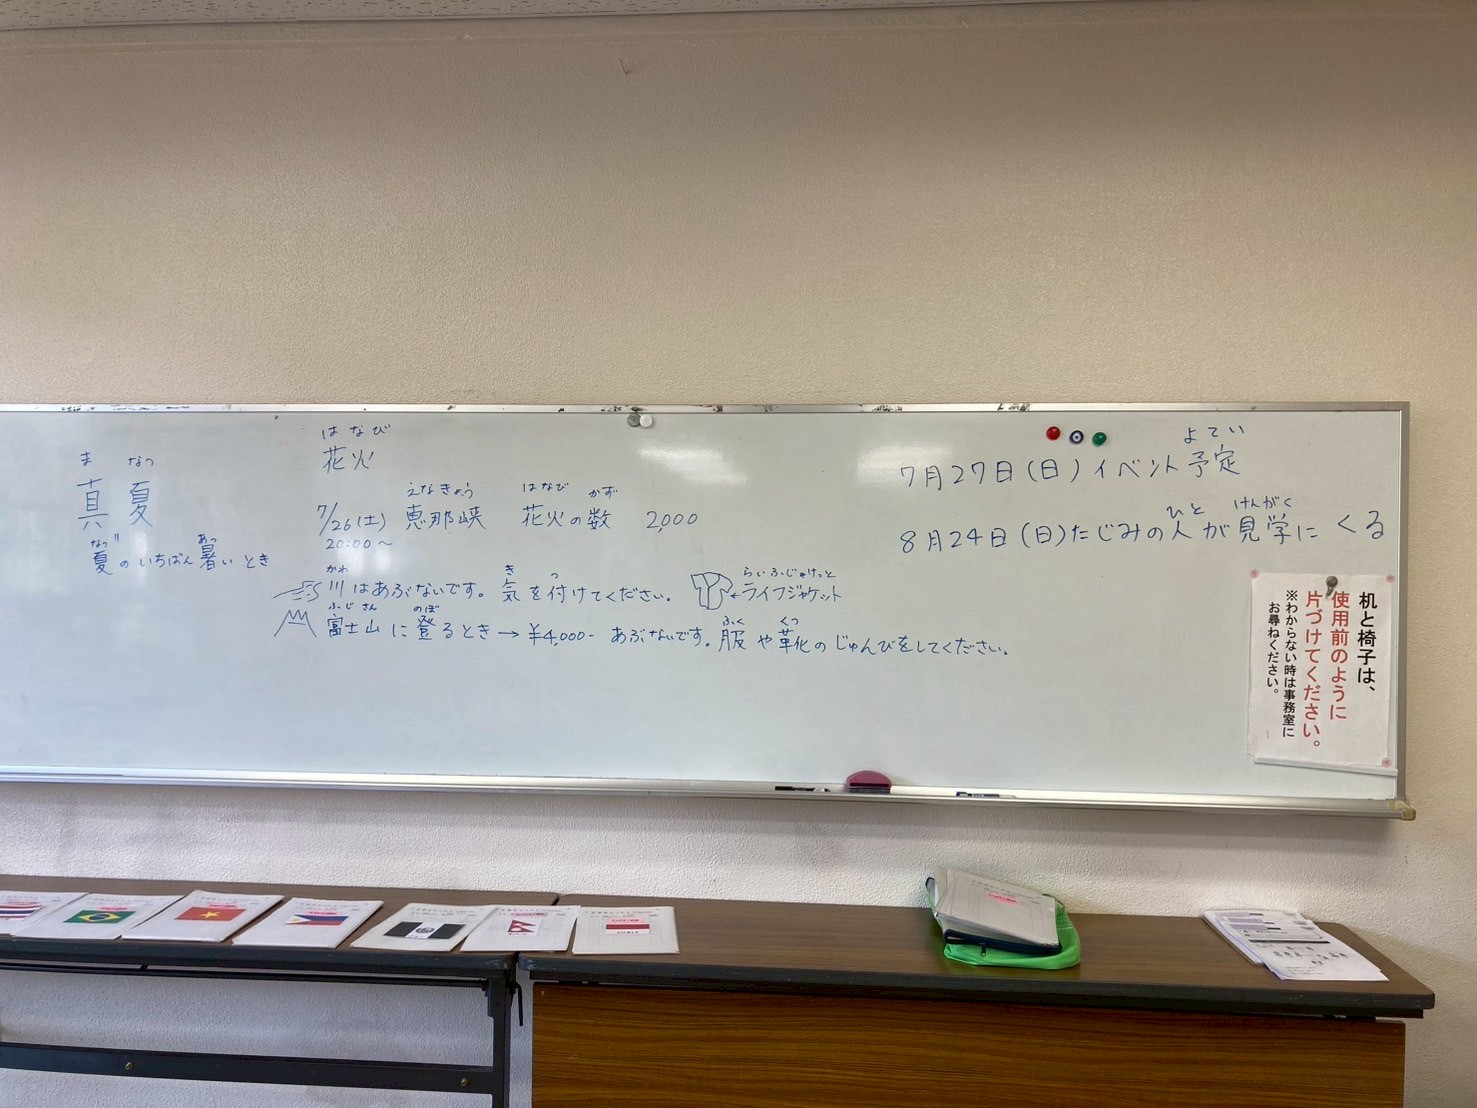 ま なつ
真夏
なつ あつ
夏のいちばん暑いとき
はなび
花火
えなきょう はなび かず
7/26(土) 恵那峡 花火の数 2,000
20:00～
かわ き つ らいふじゃけっと
川はあぶないです。気を付けてください。 ←ライフジャケット
ふじさん のぼ ふく くつ
富士山に登るとき→¥4,000- あぶないです。服や靴のじゅんびをしてください。
よてい
7月27日(日)イベント予定
ひと けんがく
8月24日(日)たじみの人が見学にくる
机と椅子は、
使用前のように
片づけてください。
※わからない時は事務室に
お尋ねください。